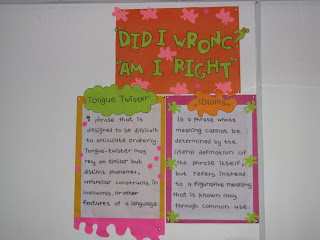 "DID I WRONG?
"AM I RIGHT"
Tongue Twister
A phrase that is
designed to be difficult
to articulate properly.
Tongue-twister may
rely on similar but
distinct phonemes,
unfamiliar constructs in
loanwords, or other
features of a language.
Idioms
is a phrase whose
meaning cannot be
determined by the
literal definition of
the phrase itself,
but refers instead
to a figurative meaning
that is known only
through common use.